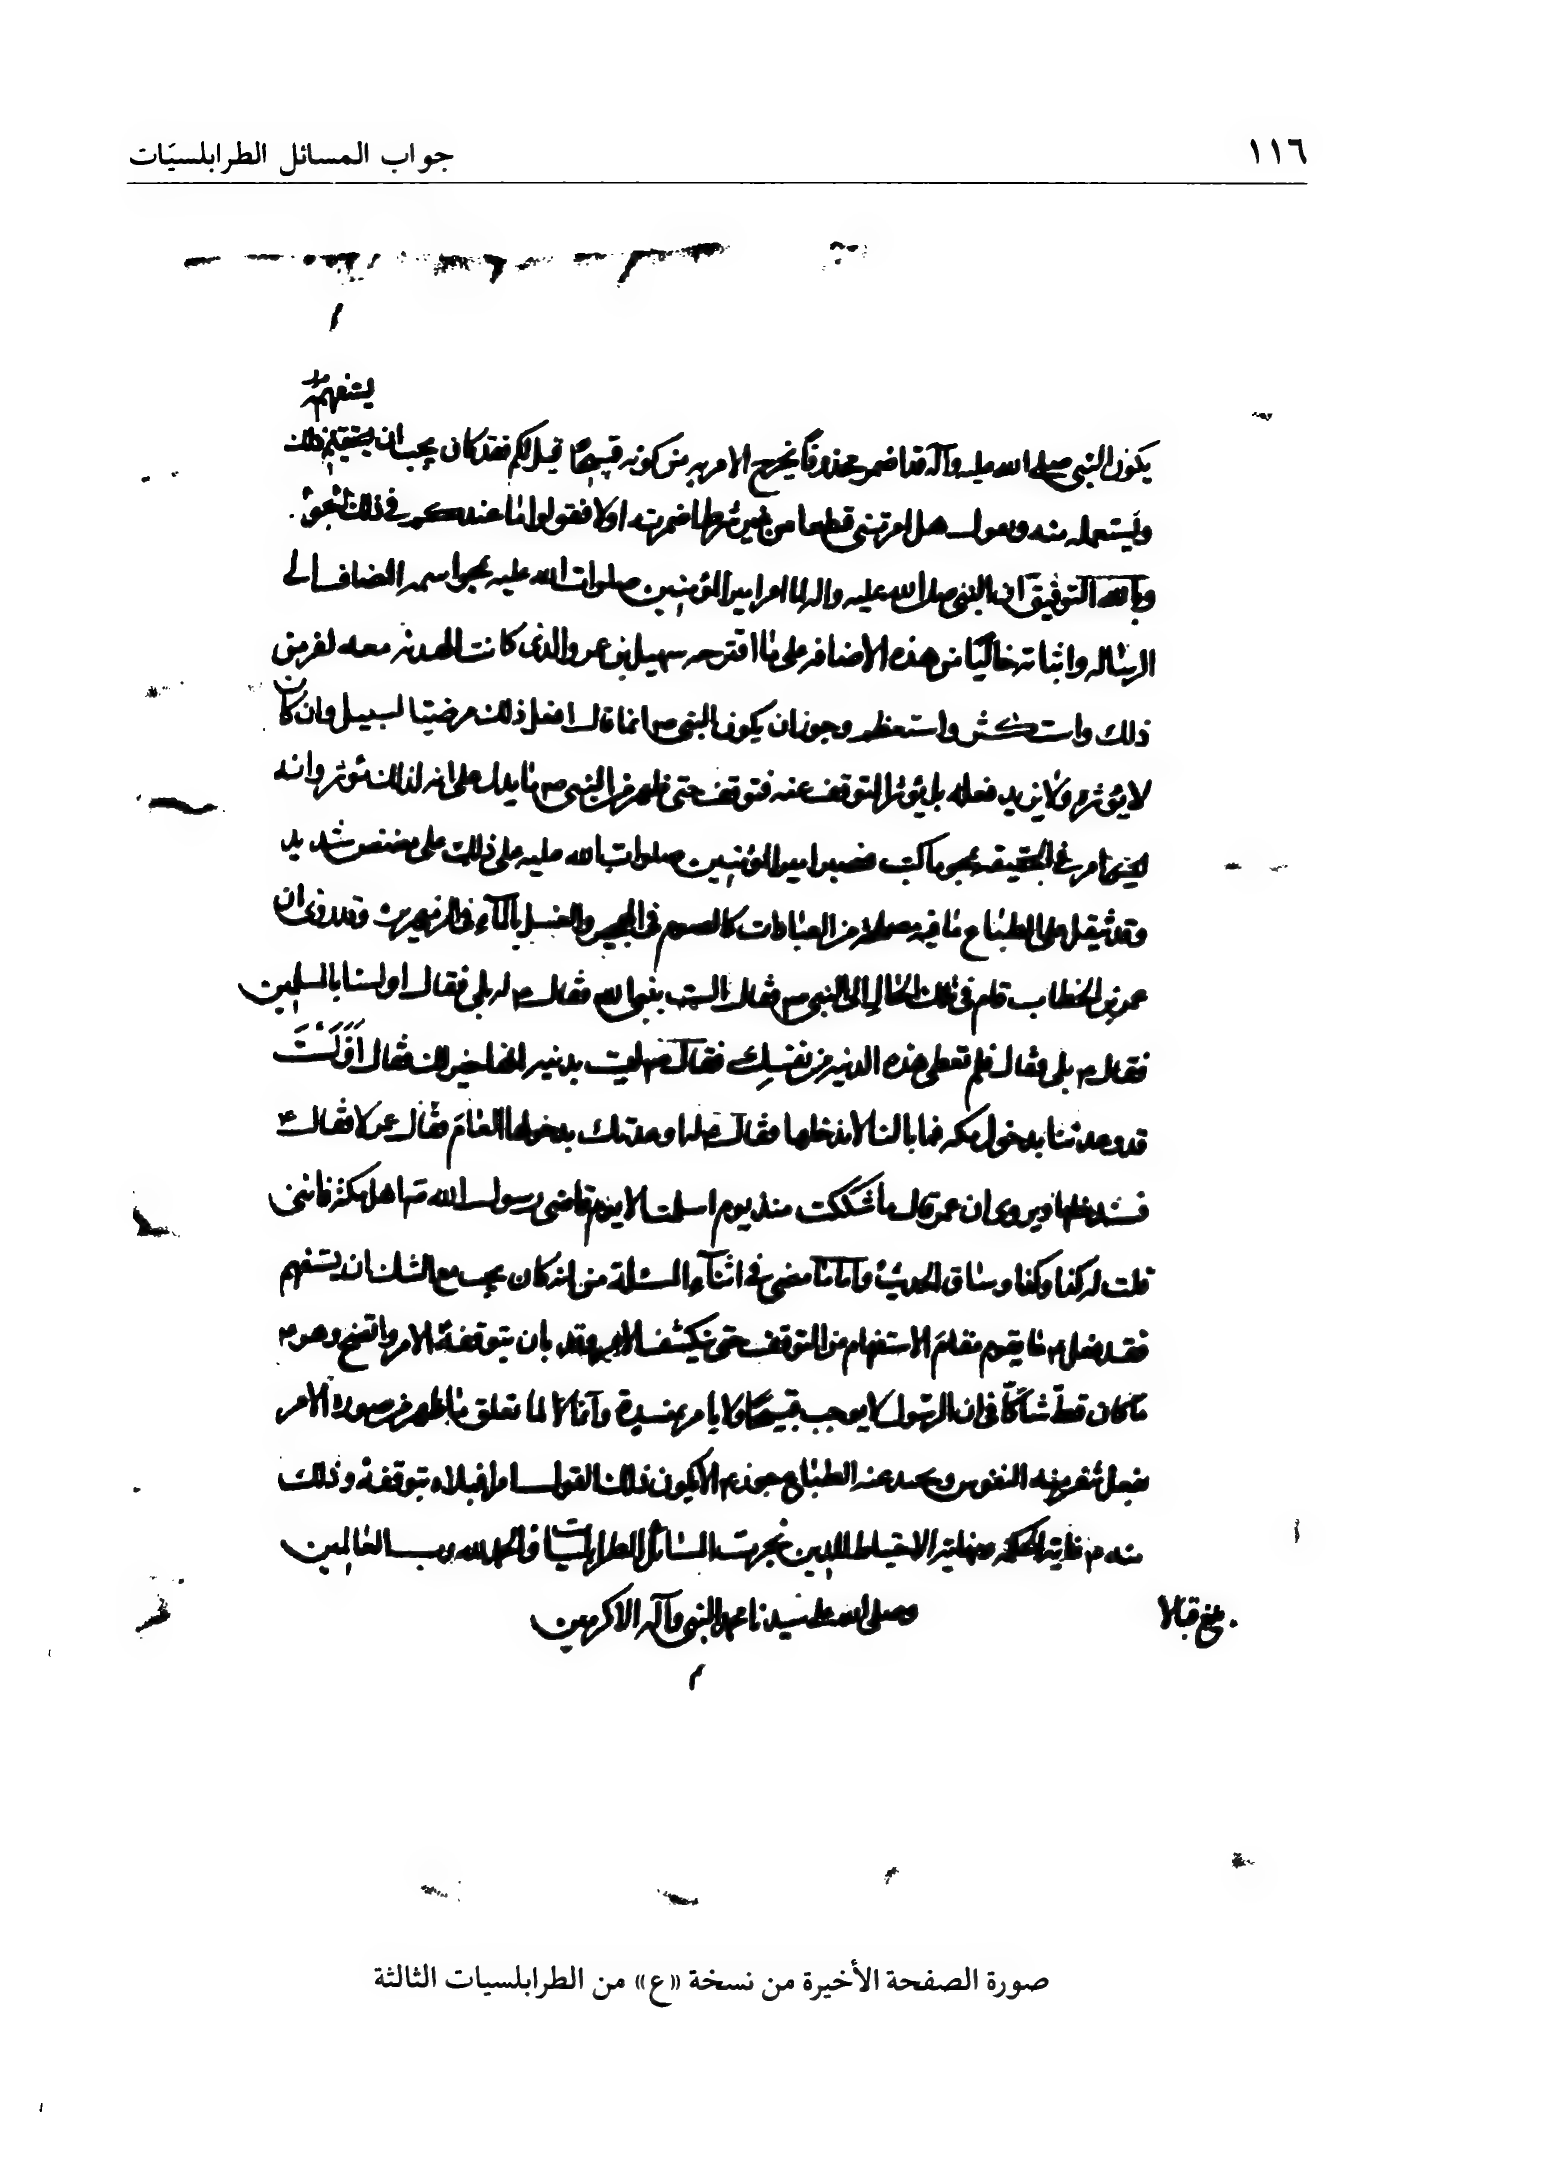 ١١٦
جواب المسائل الطرابلسيّات
يستفهم
يكون النبي صلى الله عليه وآله قد اضمر محذوفا يخرج الامر به من كونه قبيحا قيل لكم فقد كان يجب ان ذلك
منه ويقول هل امرتني قطعا من غير شرط اضمرته اولا فقولوا ما عندكم في ذلك
وبالله التوفيق ان النبي صلى الله عليه واله لما امر امير المؤمنين صلوات الله عليه بمحو اسمه المضاف الى
الرساله واثباته خاليا من هذه الاضافه على ما اقترحه سهيل بن عمرو الذي كانت الهدنه معه نفر من
ذلك واستكثره واستعظمه وجوز ان يكون النبي ص انما قال افعل ذلك مرضيا لسهيل وان كان
لا يؤثره ولا يريد فعله بل يؤثر التوقف عنه فتوقف حتى ظهر من النبي ص ما يدل على انه لذلك مؤثر وانه
امر في الحقيقه بمحو ما كتب فصبر امير المؤمنين صلوات الله عليه على ذلك على مضض شديد
وقد ثيقل على الطباع ما فيه مصلحة من العبادات كالصوم في الحر والغسل بالماء في الزمهرير وقد روى ان
عمر بن الخطاب قام في تلك الحال الى النبي ص فقال الست بنبي الله فقال ع له بلى فقال اولسنا بالمسلمين
فقال ع بلى فقال فلم تعطى هذه الدنيه من نفسك فقال ص ليست بدنيه انها خير لك فقال أفلست
قد وعدتنا بدخول مكه فما بالنا لا ندخلها فقال ع لها وعدتك بدخولها العام فقال عمر لا فقال ع
فستدخلها ويروى ان عمر قال ما شككت منذ يوم اسلمت الا يوم قاضى رسول الله ص اهل مكة فانني
قلت له كذا وكذا وساق الحديث واما ما مضى في اثناء المسئلة من انه كان يجب مع الشك ان يستفهم
فقد فعل ع ما يقوم مقام الاستفهام من التوقف حتى ينكشف الامر وقد بان بتوقفه الامر واتضح وهو ع
ما كان قط شاكا في ان الرسول لا يوجب قبيحا ولا يامر بمفسدة وانما لما تعلق ما ظهر من صورة الامر
بفعل تنفر منه النفوس وتحيد عنه الطباع جوز ع الا يكون ذلك القول امرا بتوقفه وذلك
منه ع غاية الحكمه ونهاية الاحتياط للدين نجزت المسائل الطرابلسيات والحمد لله رب العالمين
وصلى الله على سيدنا محمد النبي وآله الاكرمين
بلغ قبالا
صورة الصفحة الأخيرة من نسخة «ع» من الطرابلسيات الثالثة